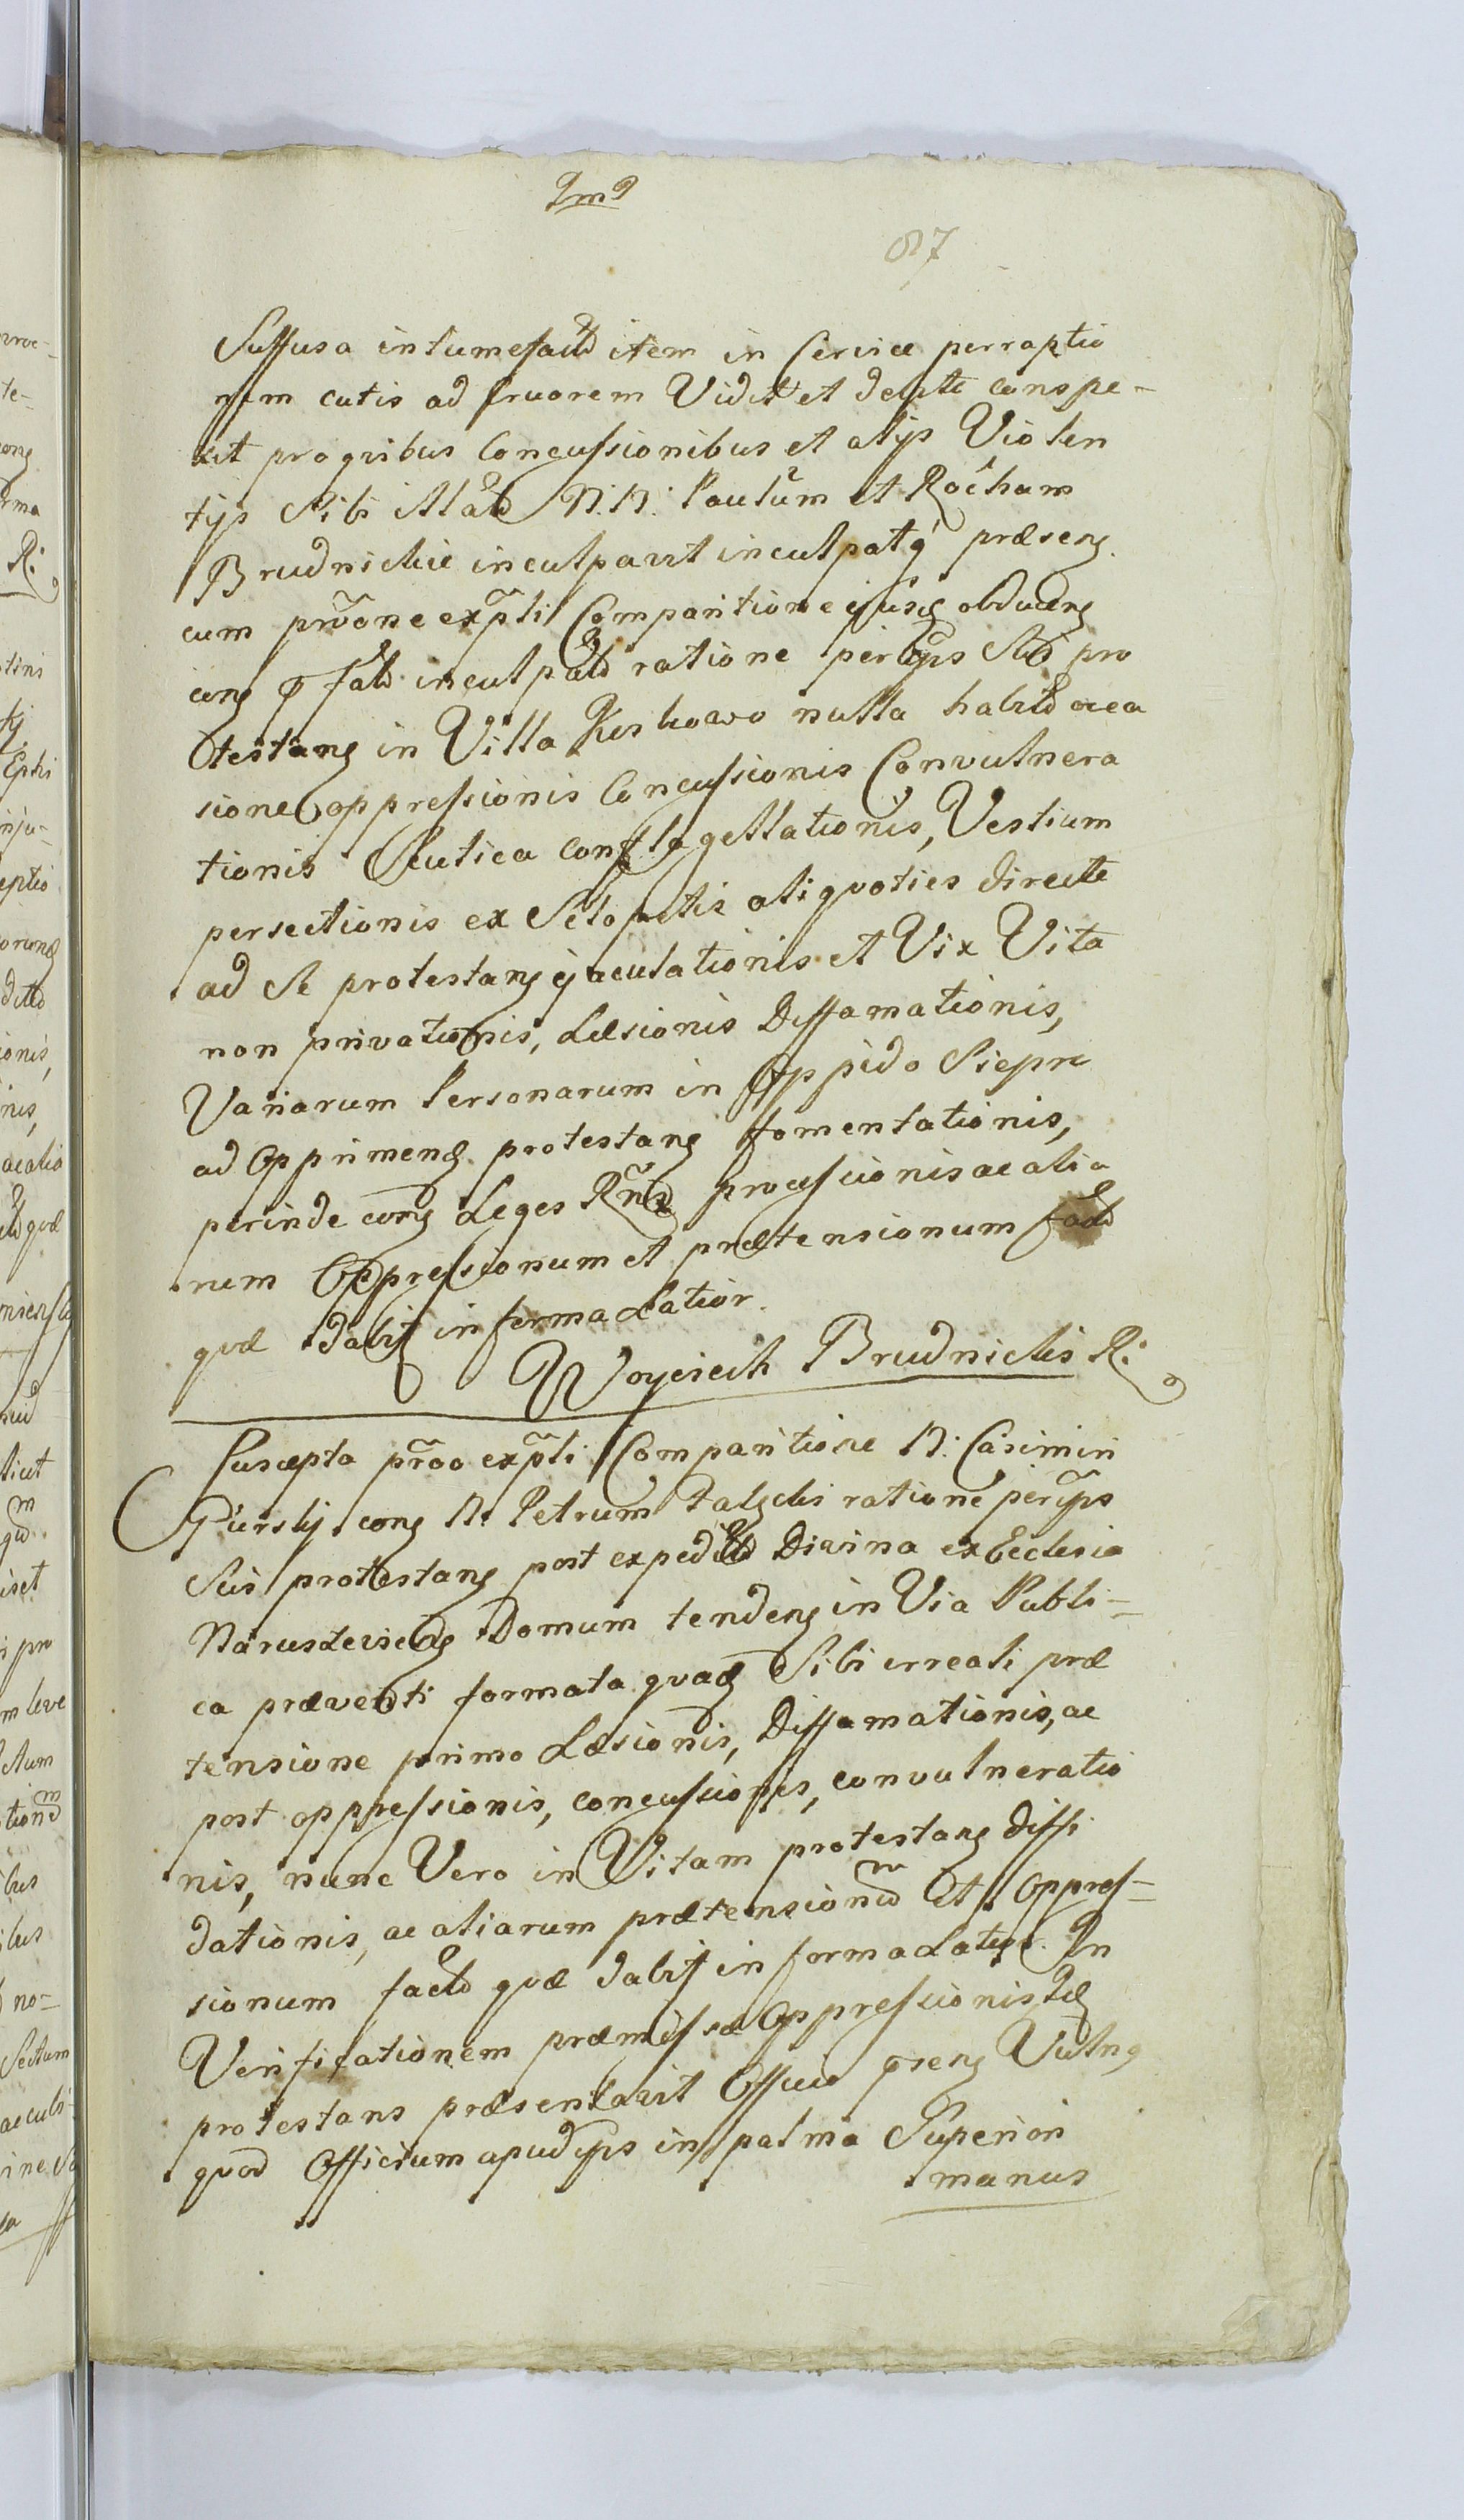 87
Suffusa intumefacta item in Cervice perraptio
nem cutis ad cruorem Vidit et conspe-
xit pro quibus Concussionibus et alijs Violen
tijs Sibi illatis N.N. Paulum et Rocham
Brudnickie inculpavit inculpatq præsens
cum exñpli Comparitione ejusq obducens
cons inculpatos ratione perceptis Sibi pro
testans in Villa nulla habita occa
sione oppressionis Concussionis Convulnera
tionis Scutica conflagellationis, Vestium
persectionis ex Sclopetis aliquoties directe
ad Se protestans ejaculationis et Vix Vita
non privationis, Læsionis Diffamationis,
Variarum Personarum in Oppido Siepre
ad Opprimend protestans fomentationis,
perinde cons Leges Rñi processionis ac alia
rum Oppressionum et prætensionum facta
quæ dabit in forma Latior.
Woyciech Brudnicki R.
Suscepta exñpli Comparitione N. Casimiri
Giurskij cons N. Petrum ratione
Suis protestans post expedita Divina ex Ecclesia
Domum tendens in Via Publi-
ca præventi formata quadā Sibi irreali præ
tensione primo Læsionis, Diffamationis, ac
post oppressionis, concussionis, convulneratio
nis, nunc Vero in Vitam protestans diffi
dationis, ac aliarum prætensionum Et Oppres-
sionum facta quæ dabit in forma Latior. In
Verificationem præmissæ Oppressionis Idē
protestans præsentavit Officio præns Vulnq
quod Officium apud in palma Superiori
manus